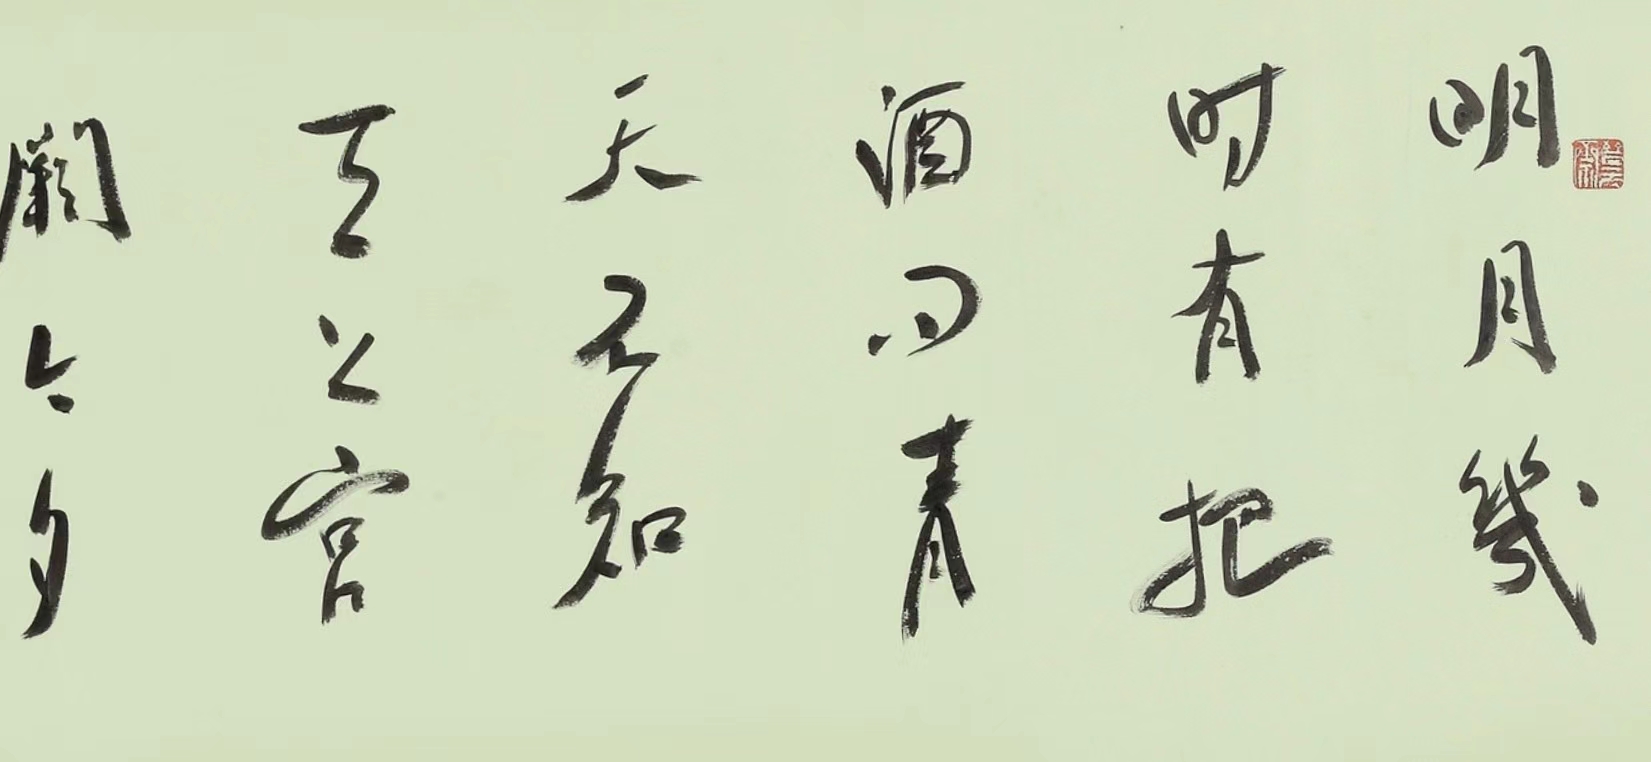 明月幾
时有把
酒问青
天不知
天上宫
阙今夕